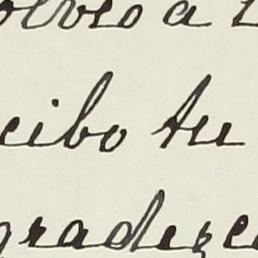 olvió a
cibo tu
gradezco